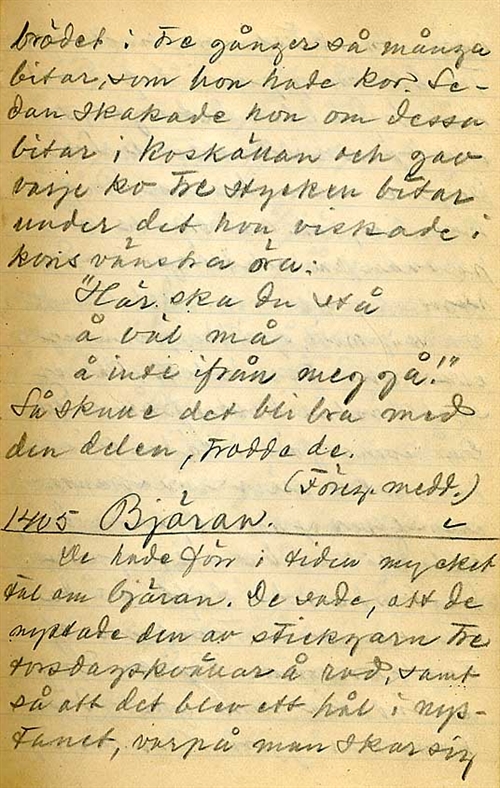 brödet i tre gånger så många
bitar, som hon hade kor. Se-
dan skakade hon om dessa
bitar i koskällan och gav
varje ko tre stycken bitar
under det hon viskade i
kons vänstra öra:
"Här ska du stå
å väl må
å inte ifrån meg gå!"
Så skulle det bli bra med
den delen, trodde de.
(Föreg. medd.)
1405 Bjäran.
De hade förr i tiden mycket
tal om bjäran. De sade, att de
nystade den av stickgarn tre
torsdagskvällar å rad, samt
så att det blev ett hål i nys-
tanet, varpå man skar sig